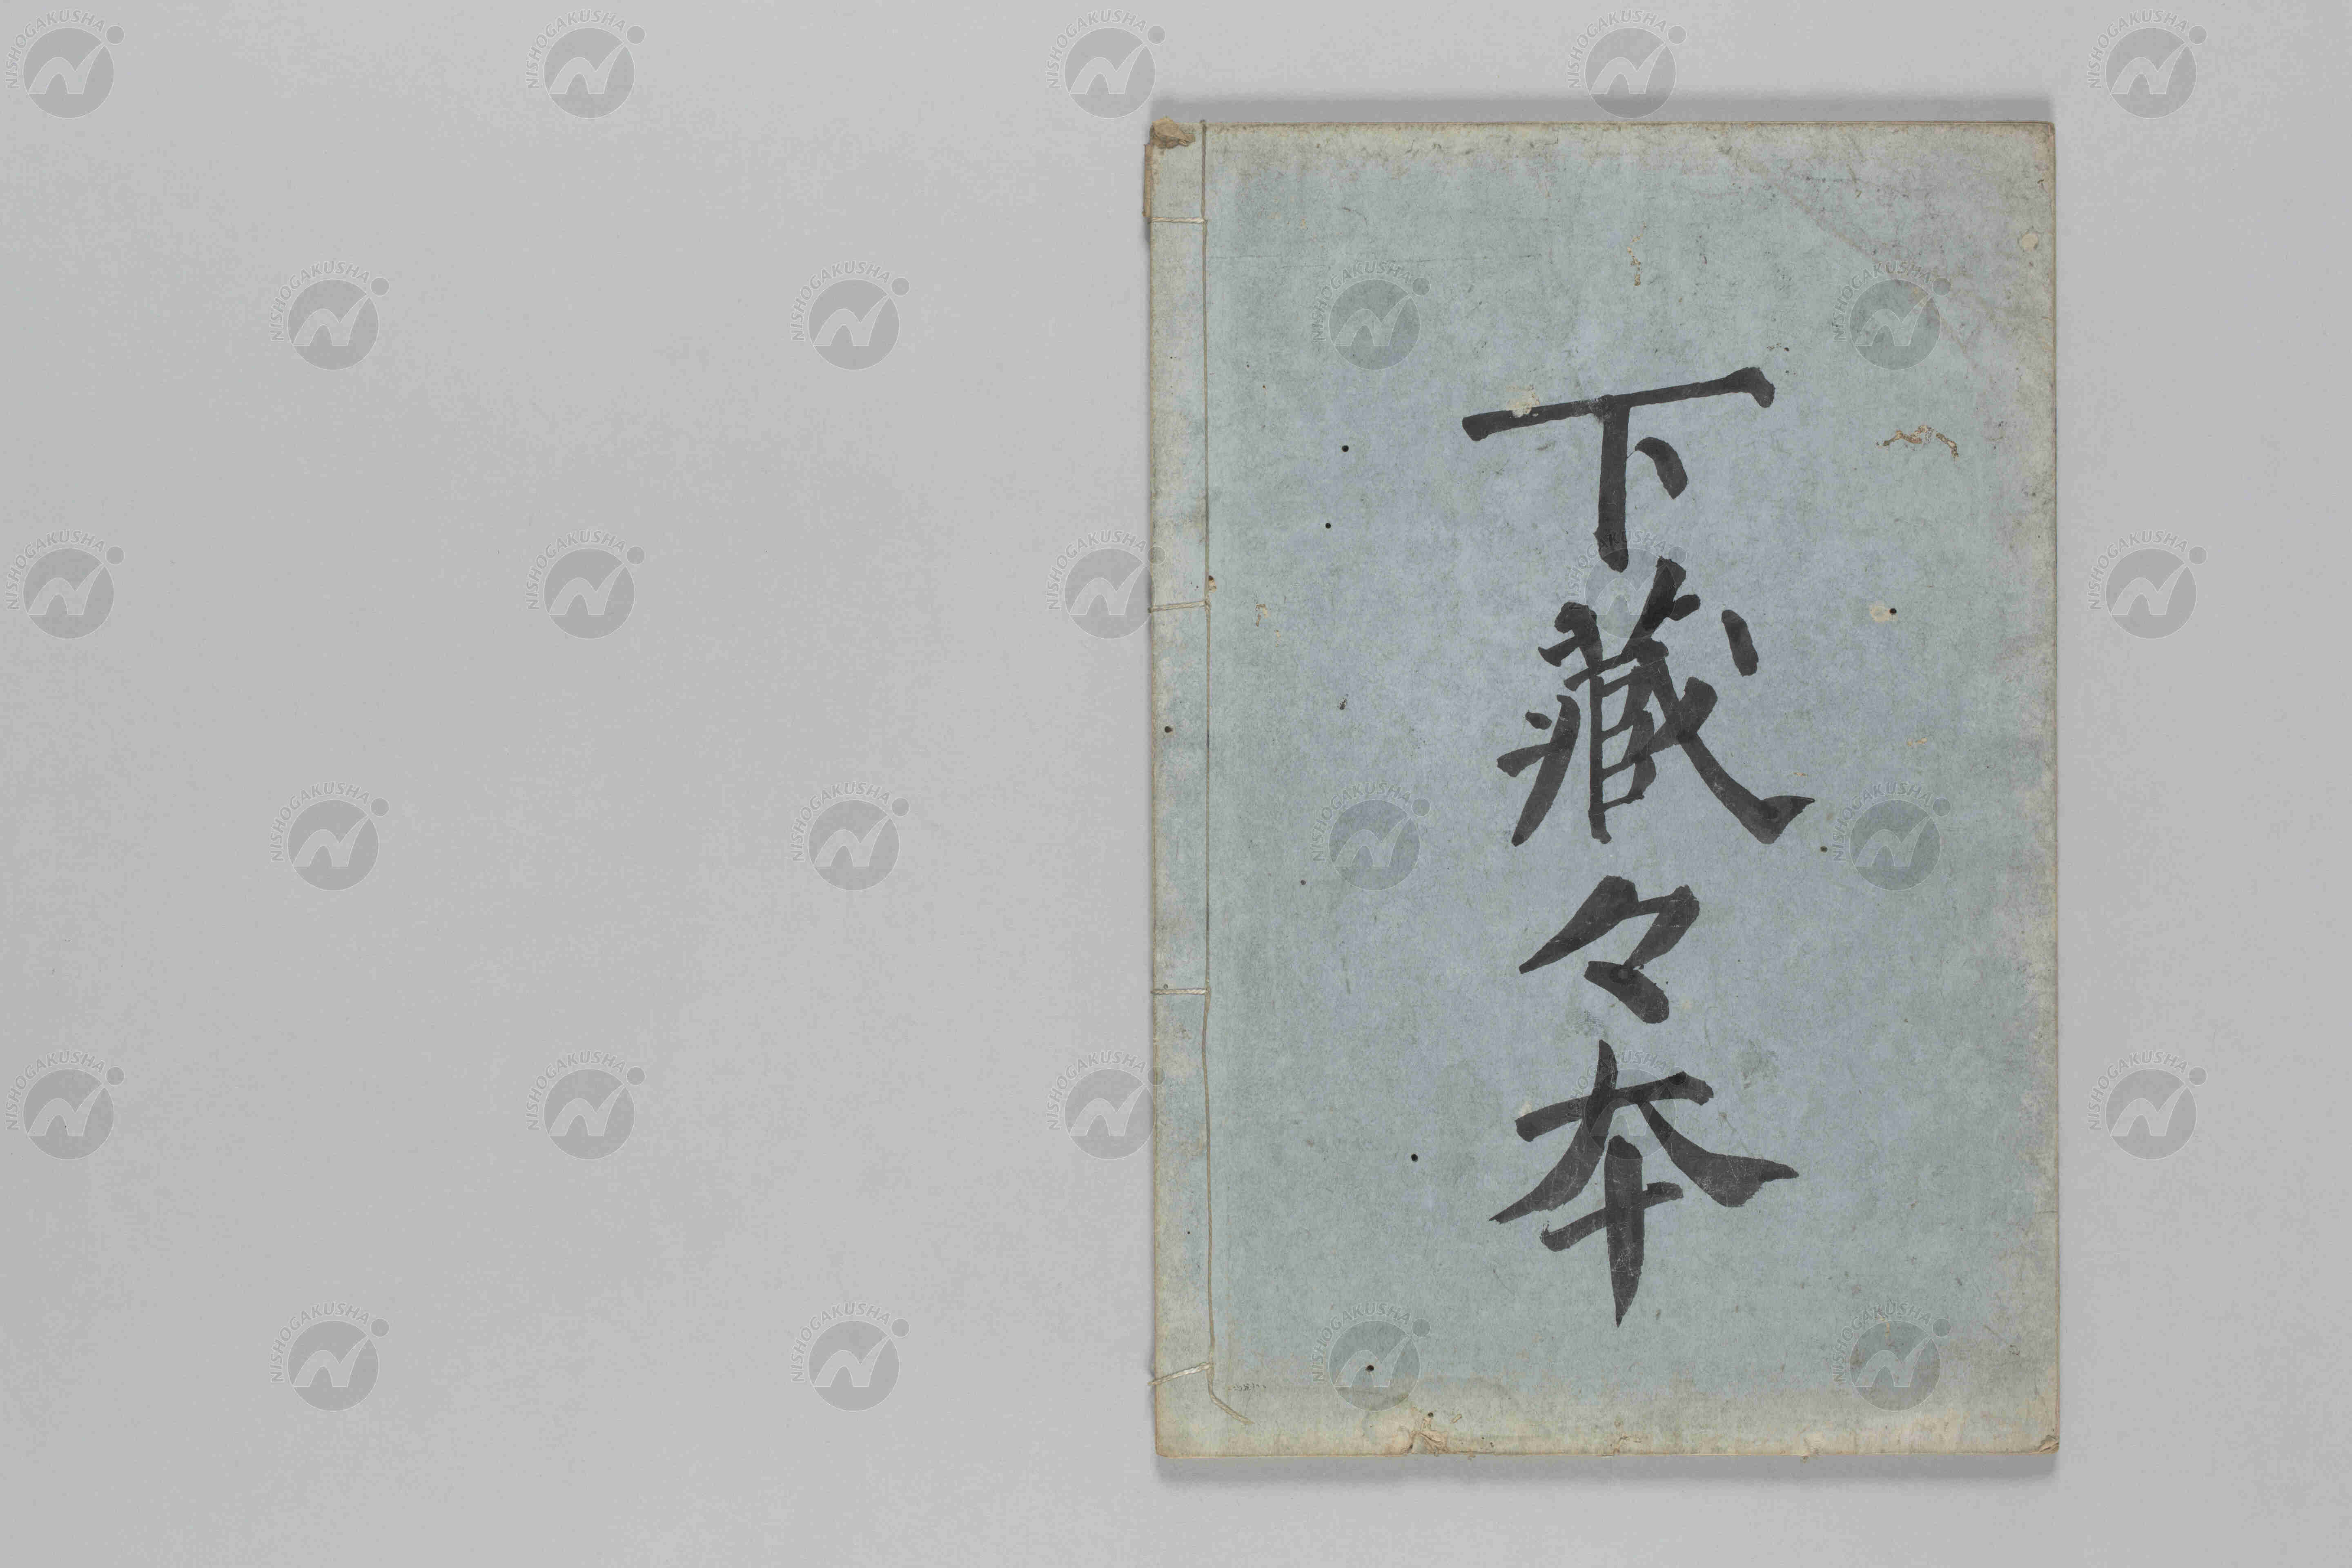 下藏々本
NISHOGAKUSHA